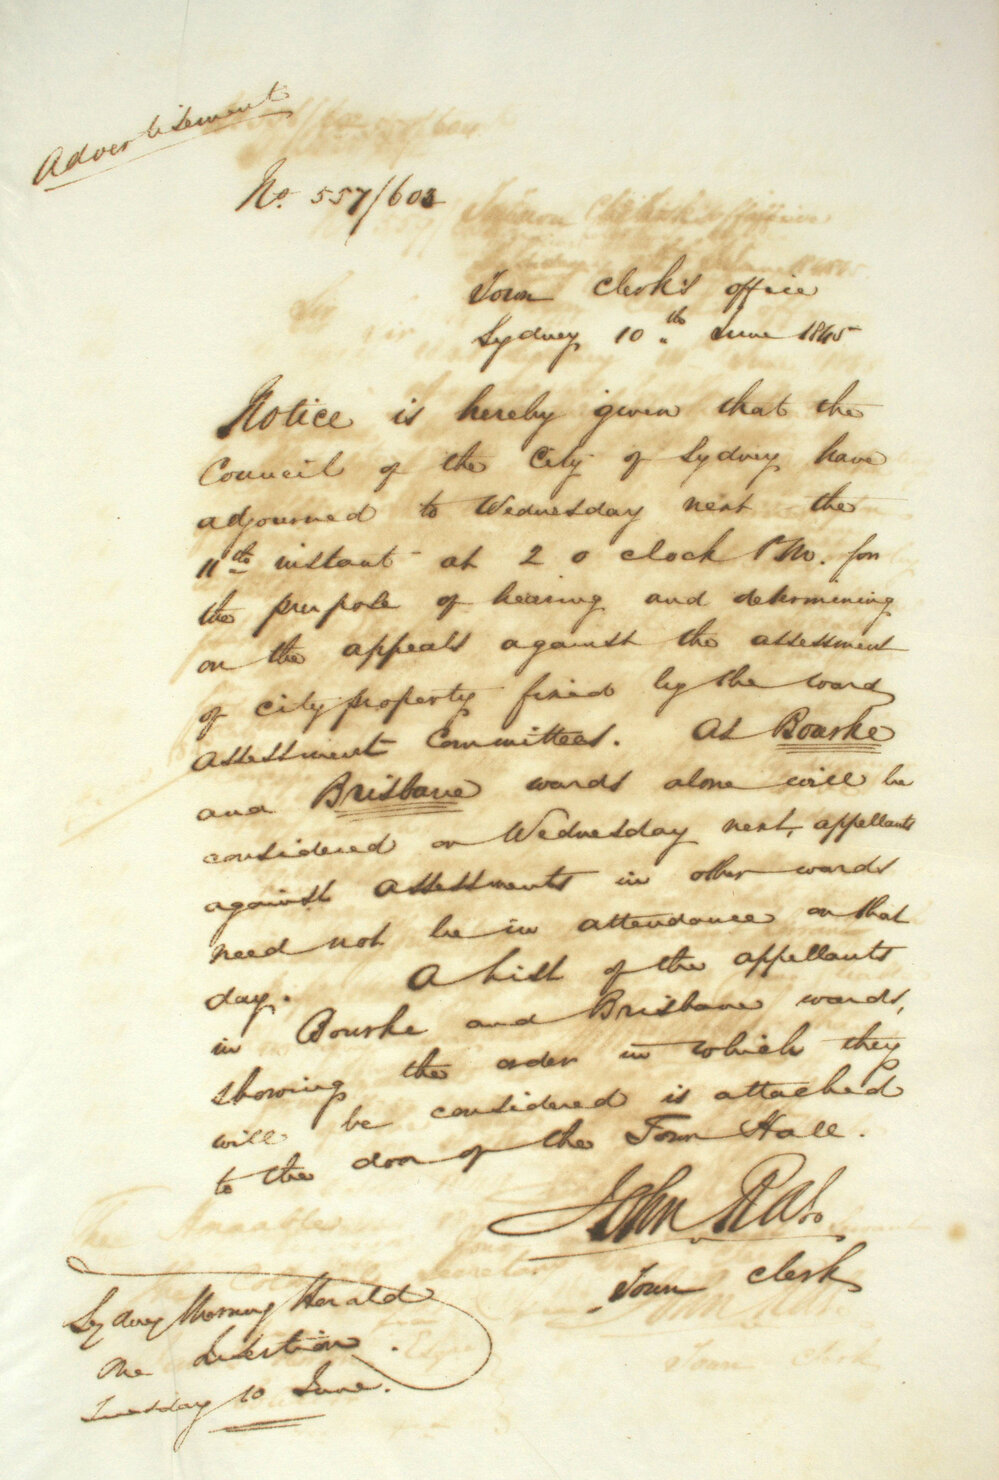 Advertisement
No. 557/603
Town Clerk's office
Sydney 10th June 1845
Notice is hereby given that the
Council of the City of Sydney have
adjourned to Wednesday next the
11th instant at 2 o clock P.M. for
the purpose of hearing and determining
on the appeals against the assessment
of city property fixed by the ward
assessment Committees. As Bourke
and Brisbane wards alone will be
considered on Wednesday next, appellants
against assessments in other wards
need not be in attendance on that
day. A list of the appellants
in Bourke and Brisbane wards,
showing the order in which they
will be considered is attached
to the door of the Town Hall.
John Rae
Town Clerk
Sydney Morning Herald
One Insertion.
Tuesday 10 June.